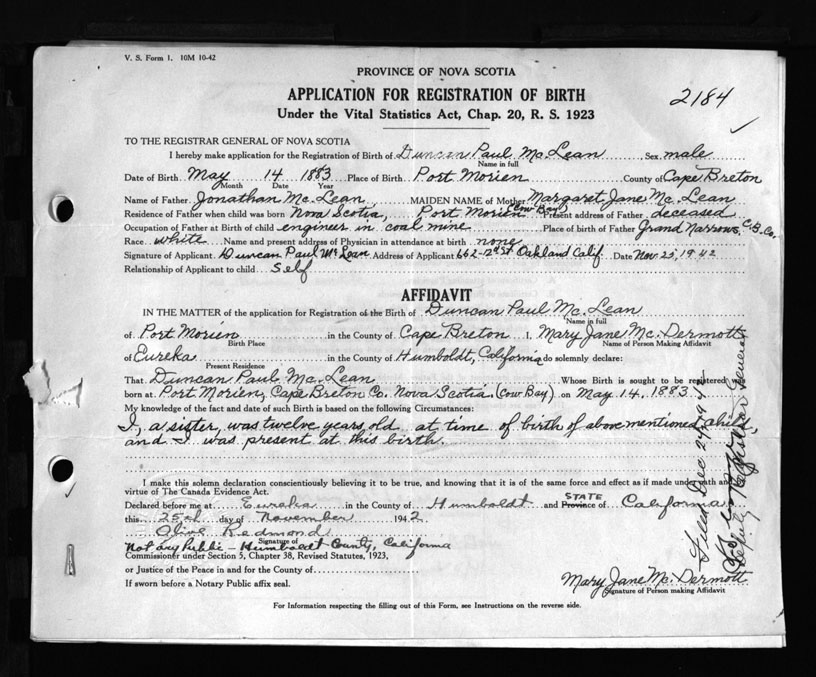 V. S. Form 1. 10M 10-42
PROVINCE OF NOVA SCOTIA
APPLICATION FOR REGISTRATION OF BIRTH
2184
Under the Vital Statistics Act, Chap. 20, R. S. 1923
TO THE REGISTRAR GENERAL OF NOVA SCOTIA
I hereby make application for the Registration of Birth of Duncan Paul McLean Sex male
Name in full
Date of Birth May 14 1883 Place of Birth Port Morien County of Cape Breton
Month Date Year
Name of Father Jonathan McLean MAIDEN NAME of Mother Margaret Jane McLean
Residence of Father when child was born Nova Scotia, Port Morien (Cow Bay) Present address of Father deceased
Occupation of Father at Birth of child engineer in coal mine Place of birth of Father Grand Narrows, C.B. Co.
Race white Name and present address of Physician in attendance at birth none
Signature of Applicant Duncan Paul McLean Address of Applicant 662-12th St Oakland Calif Date Nov 25, 1942
Relationship of Applicant to child Self
AFFIDAVIT
IN THE MATTER of the application for Registration of the Birth of Duncan Paul McLean
Name in full
of Port Morien in the County of Cape Breton I, Mary Jane McDermott
Birth Place Name of Person Making Affidavit
of Eureka in the County of Humboldt, California do solemnly declare:
Present Residence
That Duncan Paul McLean Whose Birth is sought to be registered
born at Port Morien, Cape Breton Co. Nova Scotia (Cow Bay) on May 14, 1883
My knowledge of the fact and date of such Birth is based on the following Circumstances:
I, a sister, was twelve years old at time of birth of above mentioned child,
and I was present at this birth.
I make this solemn declaration conscientiously believing it to be true, and knowing that it is of the same force and effect as if made under oath and
virtue of The Canada Evidence Act.
Declared before me at Eureka in the County of Humboldt and STATE Province of California
this 25th day of November 1942
Olive Redmond
Signature of
Notary Public - Humboldt County, California
Commissioner under Section 5, Chapter 38, Revised Statutes, 1923,
or Justice of the Peace in and for the County of
If sworn before a Notary Public affix seal.
Mary Jane McDermott
Signature of Person making Affidavit
For Information respecting the filling out of this Form, see Instructions on the reverse side.
Filed Dec 24
Deputy Registrar General